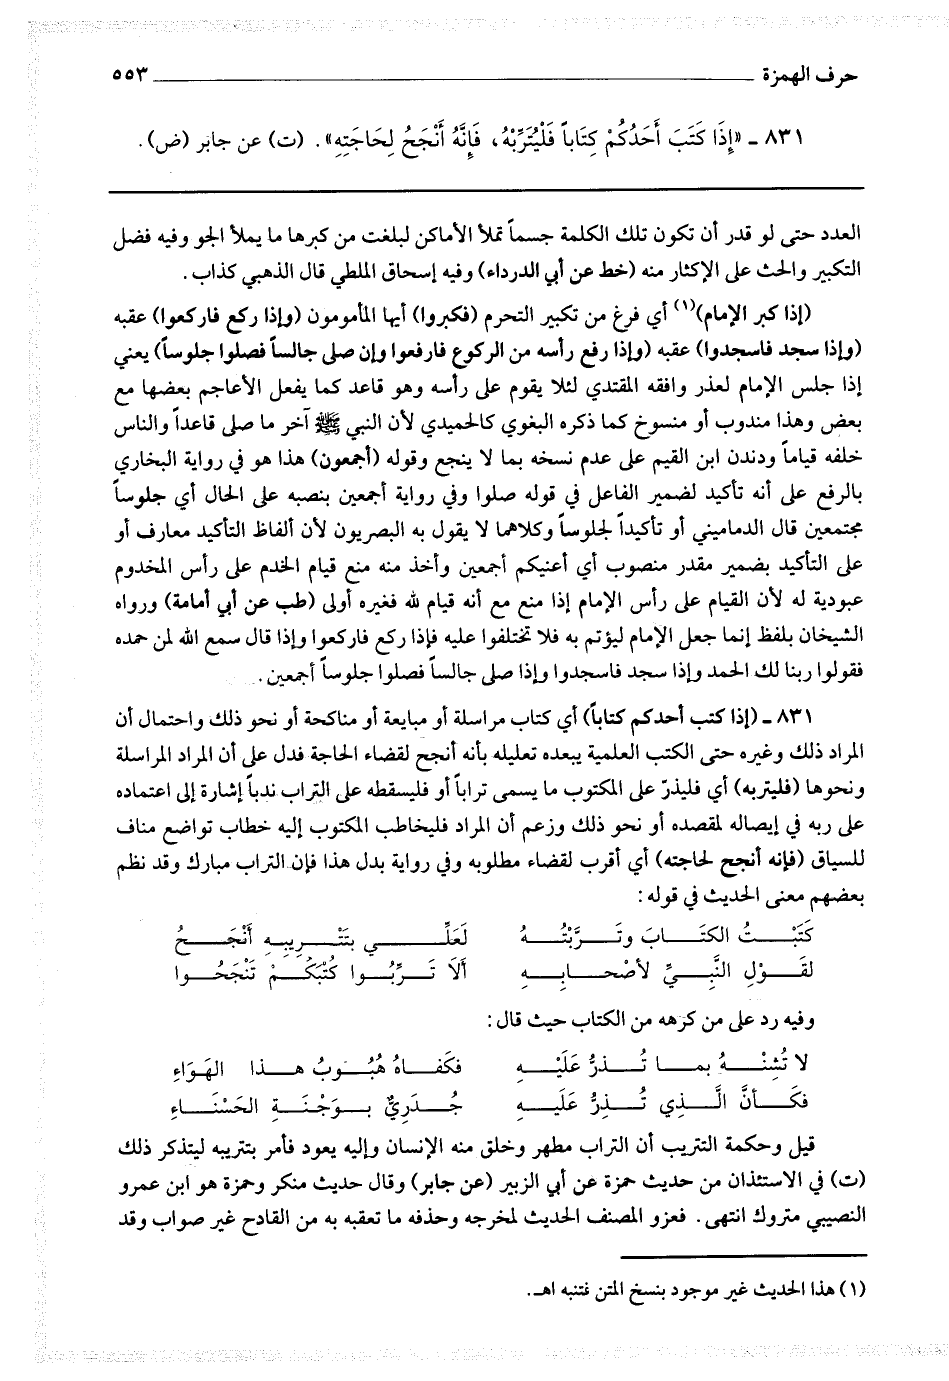 حرف الهمزة ٥٥٣
٨٣١ ـ «إِذَا كَتَبَ أَحَدُكُمْ كِتَاباً فَلْيُتَرِّبْهُ، فَإِنَّهُ أَنْجَحُ لِحَاجَتِهِ». (ت) عن جابر (ض).
العدد حتى لو قدر أن تكون تلك الكلمة جسماً تملأ الأماكن لبلغت من كبرها ما يملأ الجو وفيه فضل
التكبير والحث على الإكثار منه (خط عن أبي الدرداء) وفيه إسحاق الملطي قال الذهبي كذاب.
(إذا كبر الإمام)(١) أي فرغ من تكبير التحرم (فكبروا) أيها المأمومون (وإذا ركع فاركعوا) عقبه
(وإذا سجد فاسجدوا) عقبه (وإذا رفع رأسه من الركوع فارفعوا وإن صلى جالساً فصلوا جلوساً) يعني
إذا جلس الإمام لعذر وافقه المقتدي لئلا يقوم على رأسه وهو قاعد كما يفعل الأعاجم بعضها مع
بعض وهذا مندوب أو منسوخ كما ذكره البغوي كالحميدي لأن النبي ﷺ آخر ما صلى قاعداً والناس
خلفه قياماً ودندن ابن القيم على عدم نسخه بما لا ينجع وقوله (أجمعون) هذا هو في رواية البخاري
بالرفع على أنه تأكيد لضمير الفاعل في قوله صلوا وفي رواية أجمعين بنصبه على الحال أي جلوساً
مجتمعين قال الدماميني أو تأكيداً لجلوساً وكلاهما لا يقول به البصريون لأن ألفاظ التأكيد معارف أو
على التأكيد بضمير مقدر منصوب أي أعنيكم أجمعين وأخذ منه منع قيام الخدم على رأس المخدوم
عبودية له لأن القيام على رأس الإمام إذا منع مع أنه قيام لله فغيره أولى (طب عن أبي أمامة) ورواه
الشيخان بلفظ إنما جعل الإمام ليؤتم به فلا تختلفوا عليه فإذا ركع فاركعوا وإذا قال سمع الله لمن حمده
فقولوا ربنا لك الحمد وإذا سجد فاسجدوا وإذا صلى جالساً فصلوا جلوساً أجمعين.
٨٣١ ـ (إذا كتب أحدكم كتاباً) أي كتاب مراسلة أو مبايعة أو مناكحة أو نحو ذلك واحتمال أن
المراد ذلك وغيره حتى الكتب العلمية يبعده تعليله بأنه أنجح لقضاء الحاجة فدل على أن المراد المراسلة
ونحوها (فليتربه) أي فليذرّ على المكتوب ما يسمى تراباً أو فليسقطه على التراب ندباً إشارة إلى اعتماده
على ربه في إيصاله لمقصده أو نحو ذلك وزعم أن المراد فليخاطب المكتوب إليه خطاب تواضع مناف
للسياق (فإنه أنجح لحاجته) أي أقرب لقضاء مطلوبه وفي رواية بدل هذا فإن التراب مبارك وقد نظم
بعضهم معنى الحديث في قوله:
كَتَبْتُ الكتَابَ وتَرَّبْتُهُ لَعَلِّي بتَتْرِيبِهِ أَنْجَحُ
لقَوْلِ النَّبِيِّ لأصْحابِهِ أَلاَ تَرِّبُوا كُتْبَكُمْ تَنْجَحُوا
وفيه رد على من كرهه من الكتاب حيث قال:
لا تُشِنْهُ بمَا تُذرُّ عَلَيْهِ فكَفَاهُ هُبُوبُ هذا الهَوَاءِ
فكَأنَّ الَّذِي تُذِرُّ عَلَيهِ جُدَرِيٌّ بوَجْنَةِ الحَسْنَاءِ
قيل وحكمة التتريب أن التراب مطهر وخلق منه الإنسان وإليه يعود فأمر بتتريبه ليتذكر ذلك
(ت) في الاستئذان من حديث حمزة عن أبي الزبير (عن جابر) وقال حديث منكر وحمزة هو ابن عمرو
النصيبي متروك انتهى. فعزو المصنف الحديث لمخرجه وحذفه ما تعقبه به من القادح غير صواب وقد
(١) هذا الحديث غير موجود بنسخ المتن فتنبه اهـ.